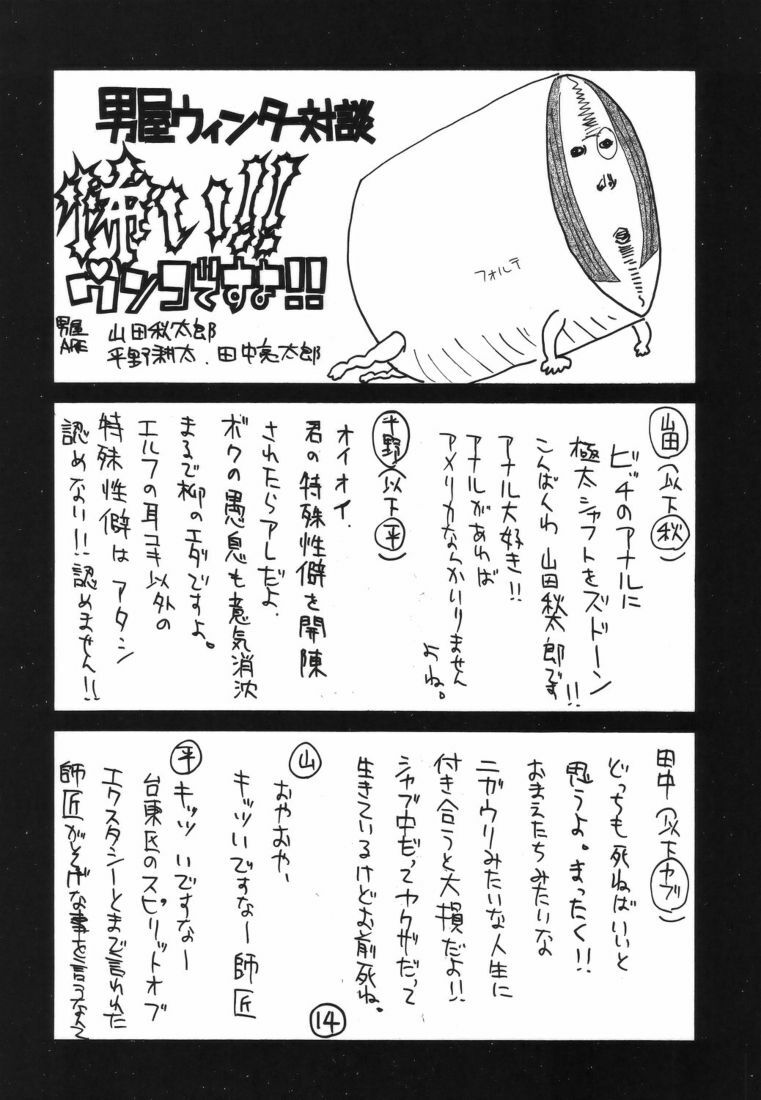 男屋ウィンター対談
怖い!!
ウンコですよ!!
男屋
ARE
山田秋太郎
平野耕太.田中亮太郎
フォルテ
山田(以下秋)
ビッチのアナルに
極太シャフトをズドーン!!
こんばんわ山田秋太郎です
アナル大好き!!
アナルがあれば
アメリカなんらかいりません
よね。
平野(以下平)
オイオイ、
君の特殊性癖を開陳
されたらアレだよ、
ボクの愚息も意気消沈
まるで柳のエダですよ。
エルフの耳コキ以外の
特殊性癖はアタシ
認めない!!認めません!!
田中(以下ヤブ)
どっちも死ねばいいと
思うよ。まったく!!
おまえたちみたいな
ニガウリみたいな人生に
付き合うと大損だよ!!
シャブ中だってヤクザだって
生きているけどお前死ね。
山
おやおや、
キッツいですなー師匠
平
キッツいですなー
台東区のスピリットオブ
エクスタシーとまで言われた
師匠がそげな事を言うなんて
14